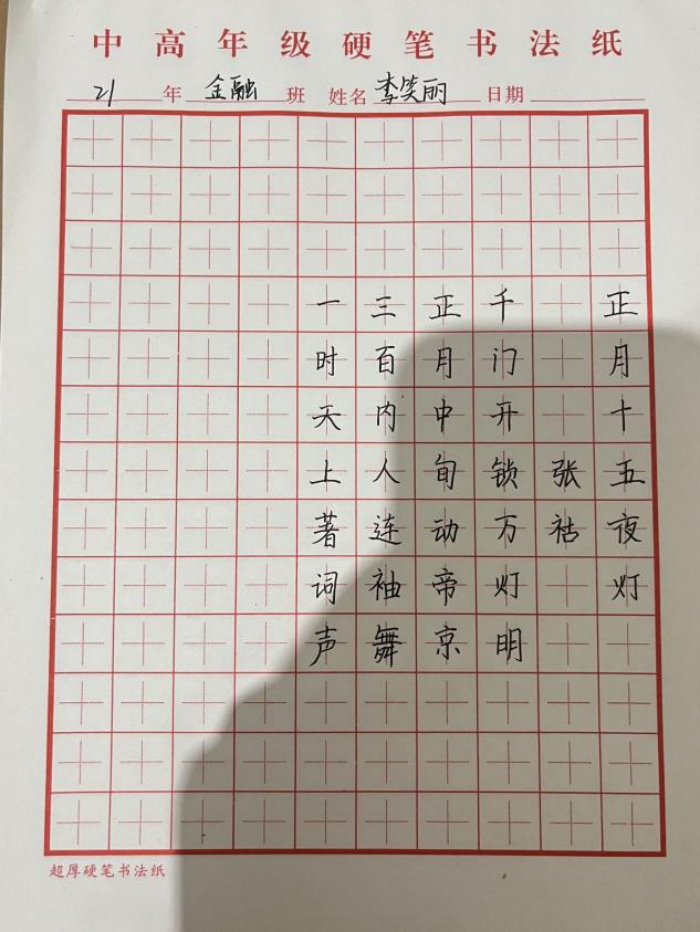 中高年级硬笔书法纸
21年金融班 姓名李笑丽日期
正月十五夜灯
张祜
千门开锁万灯明
正月中旬动帝京
三百内人连袖舞
一时天上著词声
超厚硬笔书法纸